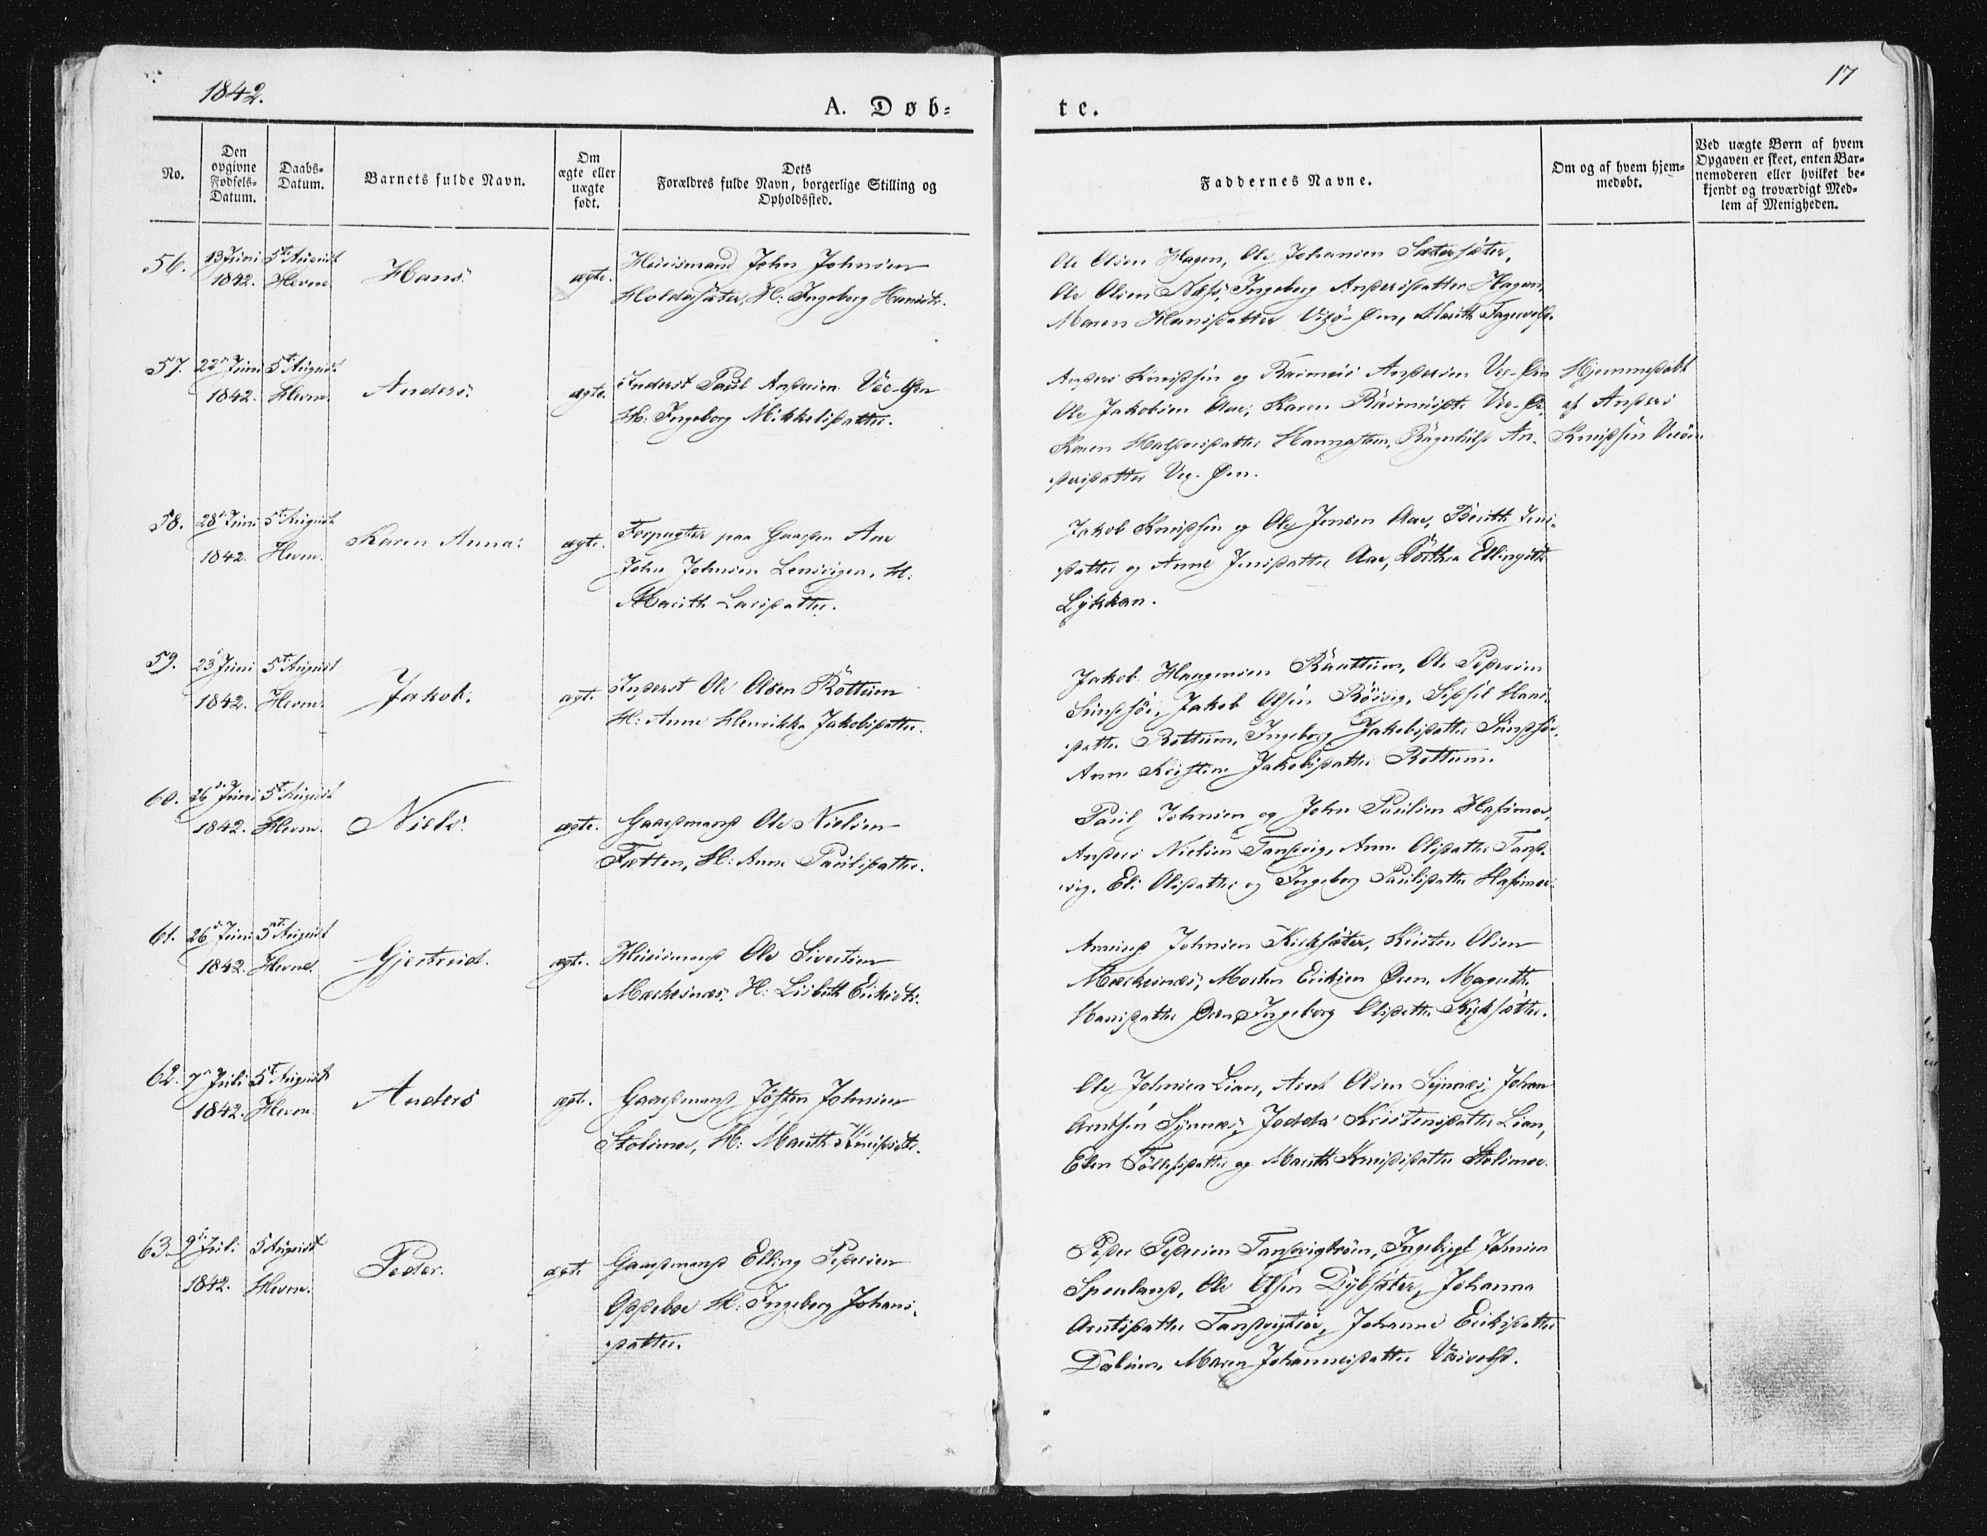 1842.
17
A. Døb=
te.
No.
Den opgivne Fødsels-Datum.
Daabs-Datum.
Barnets fulde Navn.
Om ægte eller uægte født.
Dets Forældres fulde Navn, borgerlige Stilling og Opholdssted.
Faddernes Navne.
Om og af hvem hjemmedøbt.
Ved uægte Børn af hvem Opgaven er skeet, enten Barnemoderen eller hvilket bekjendt og troværdigt Medlem af Menigheden.
56. 13 Juni 5te August
1842. Hevne Hans ægte.
Huusmand John Johnsen
Holdesæter, H: Ingeborg Hansdt.
Ole Olsen Hagen, Ole Johansen Sætersæter,
Ole Olsen Næss, Ingeborg Andersdatter Hagen,
Maren Hansdatter
57. 22 Juni 5te August
1842. Hevne Anders ægte.
Inderst Paul Andersen Vee-Øen
H: Ingeborg Mikkelsdatter.
Anders Knudsøn og Rasmus Andersen Vee-Øen
Ole Jakobsen Aae, Karen Rasmusdt. Vee-Ø
Karen Halsteinsdatter Ragnhild An-
dersdatter Vee-Øen.
Hjemmedøbt
af Anders
Knudsøn Veeøen
58. 28 Juni 5te August
1842. Hevne. Karen Anna: ægte.
Forpagter paa Gaarden Aae
John Johnsen Lensvigen, H:
Marith Larsdatter.
Jakob Knudsøn og Ole Jensen Aae, Berith Jens-
datter og Anne Jensdatter Aae, Dorthea Ellingsdt.
Lykkan.
59. 23 Juni 5te August
1842. Hevne. Jakob. ægte.
Inderst Ole Olsen Rottum
H: Anne Henrikka Jakobsdatter.
Jakob Haagensen Rottum, Ole Pedersen
Sundsøe, Jakob Olsøn Rösvig, Sissel Hans-
datter Rottum, Ingeborg Jakobsdatter Sundsøe,
Anne Kristine Jakobsdatter Rottum.
60. 26 Juni 5te August
1842. Hevne. Niels. ægte.
Gaardmand Ole Nielsen
Tætten, H: Anne Paulsdatter.
Paul Johnsen og John Paulsen Hafsmoe,
Anders Nielsen Tandvig, Anne Olsdatter Tand-
vig, Eli Olsdatter og Ingeborg Paulsdatter Hafsmoe.
61. 26 Juni 5te August
1842. Hevne. Gjertrud. ægte.
Huusmand Ole Sivertsen
Mærkesnæs, H: Lisbeth Eriksdt.
Amund Johnsen Kirksæter, Kristen Olsen
Mærkesnæs, Morten Eriksen Øen, Magrethe
Hansdatter Øen, Ingeborg Olsdatter Kirksæter.
62. 7 Juli 5te August
1842. Hevne. Anders ægte.
Gaardmand Jøsten Johnsen
Stolsmoe, H: Marith Knudsdt.
Ole Johnsen Lian, Arnt Olsen Synnæs, Johan
Arntsøn Synnæs, Jodda Kristensdatter Lian,
Elen og Marith Knudsdatter Stolsmoe.
63. 9 Juli 5 August
1842. Hevne. Peder. ægte
Gaardmand Elling Pedersen
Oppeboe H: Ingeborg Johans-
datter.
Peder Pedersen Ingebrigt Johnsen
Ole Olsøn Dybsæter, Johanna
Arntsdatter Johanne Eriksdatter
Maren Johannesdatter